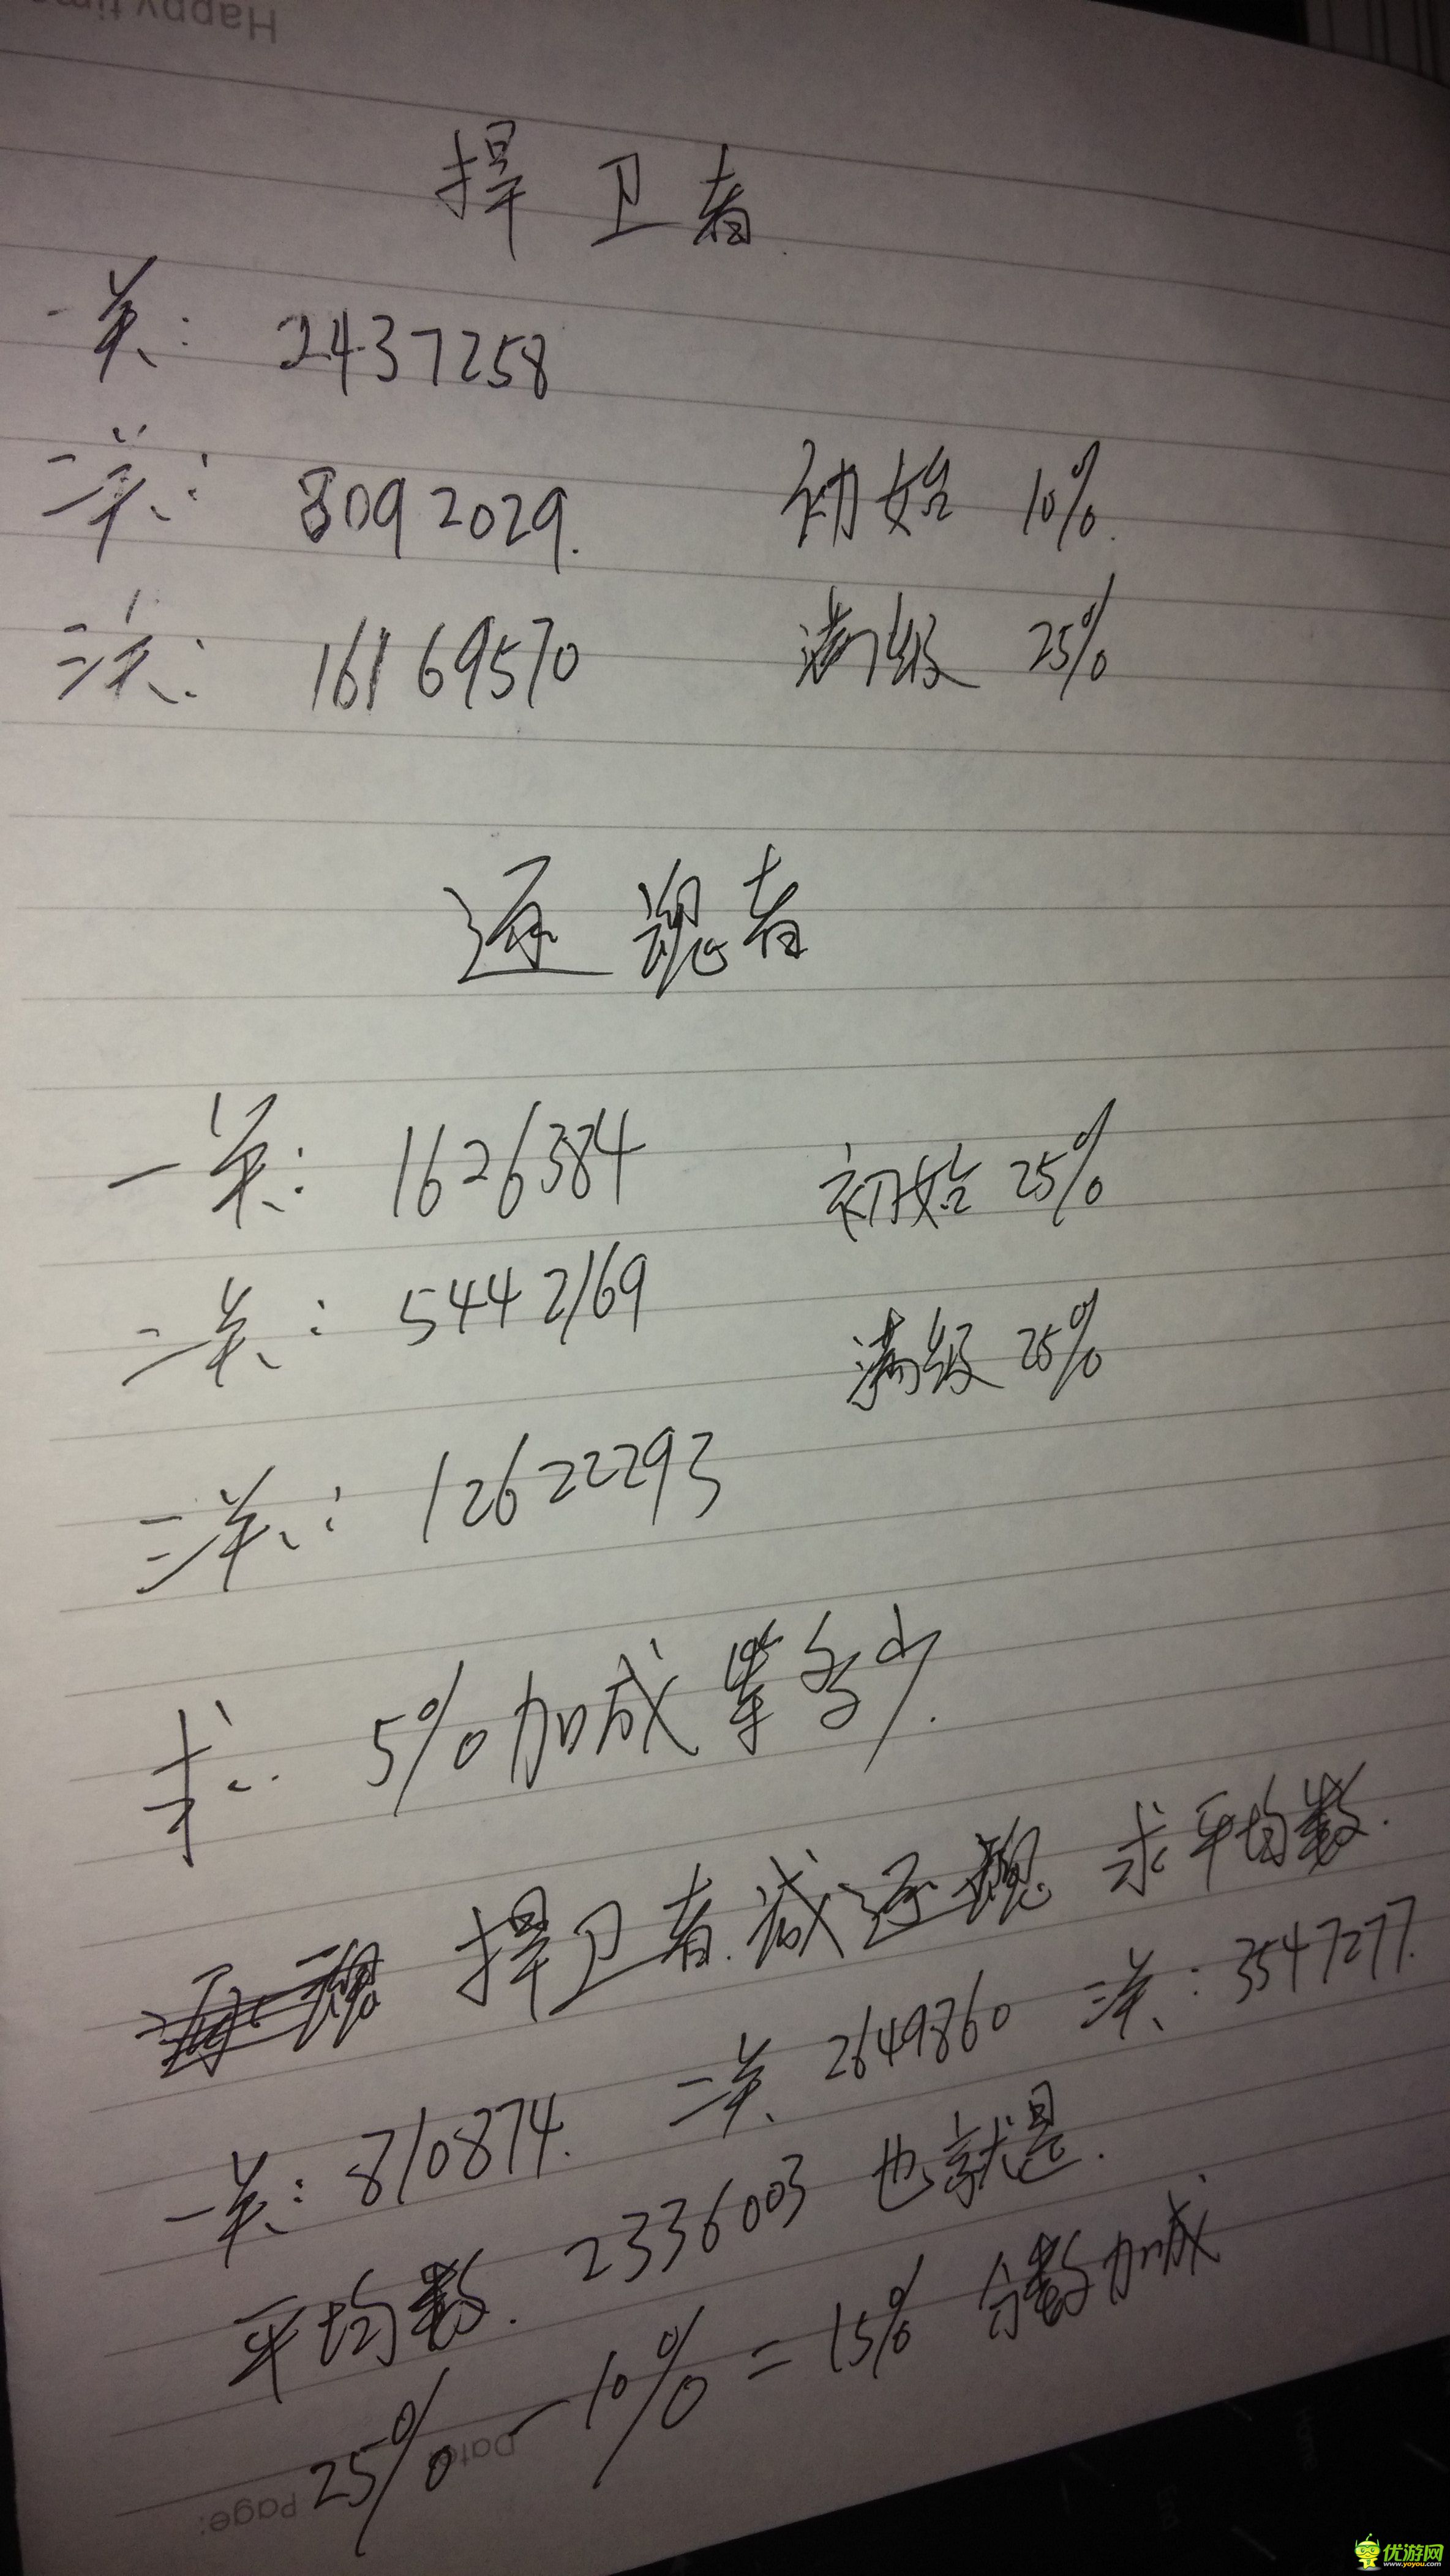 Happy tim
捍卫者
一关: 2437258
二关: 8092029. 初始 10%.
三关: 16169570 满级 25%
逐魂者
一关: 1626384 初始 25%
二关: 5442169 满级 25%
三关: 12622293
求: 5%加成 等多少.
捍卫者减逐魂 求平均数.
一关: 810874. 二关 2649860 三关: 3547277.
平均数. 2336003 也就是.
25% - 10% = 15% 分数加成
Page: Date
优游网
www.yoyou.com